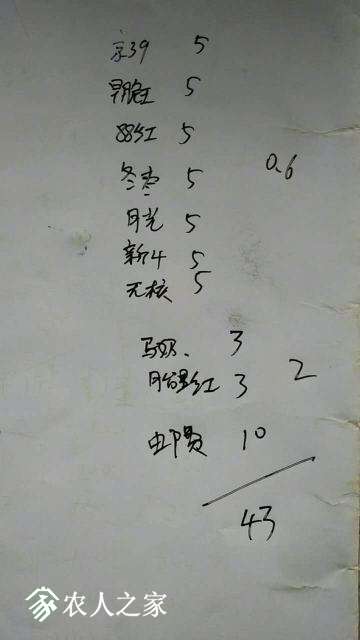 京39 5
早脆王 5
88红 5
冬枣 5 0.6
月光 5
新4 5
无核 5
马奶、 3
胎里红 3 2
邮费 10
43
农人之家